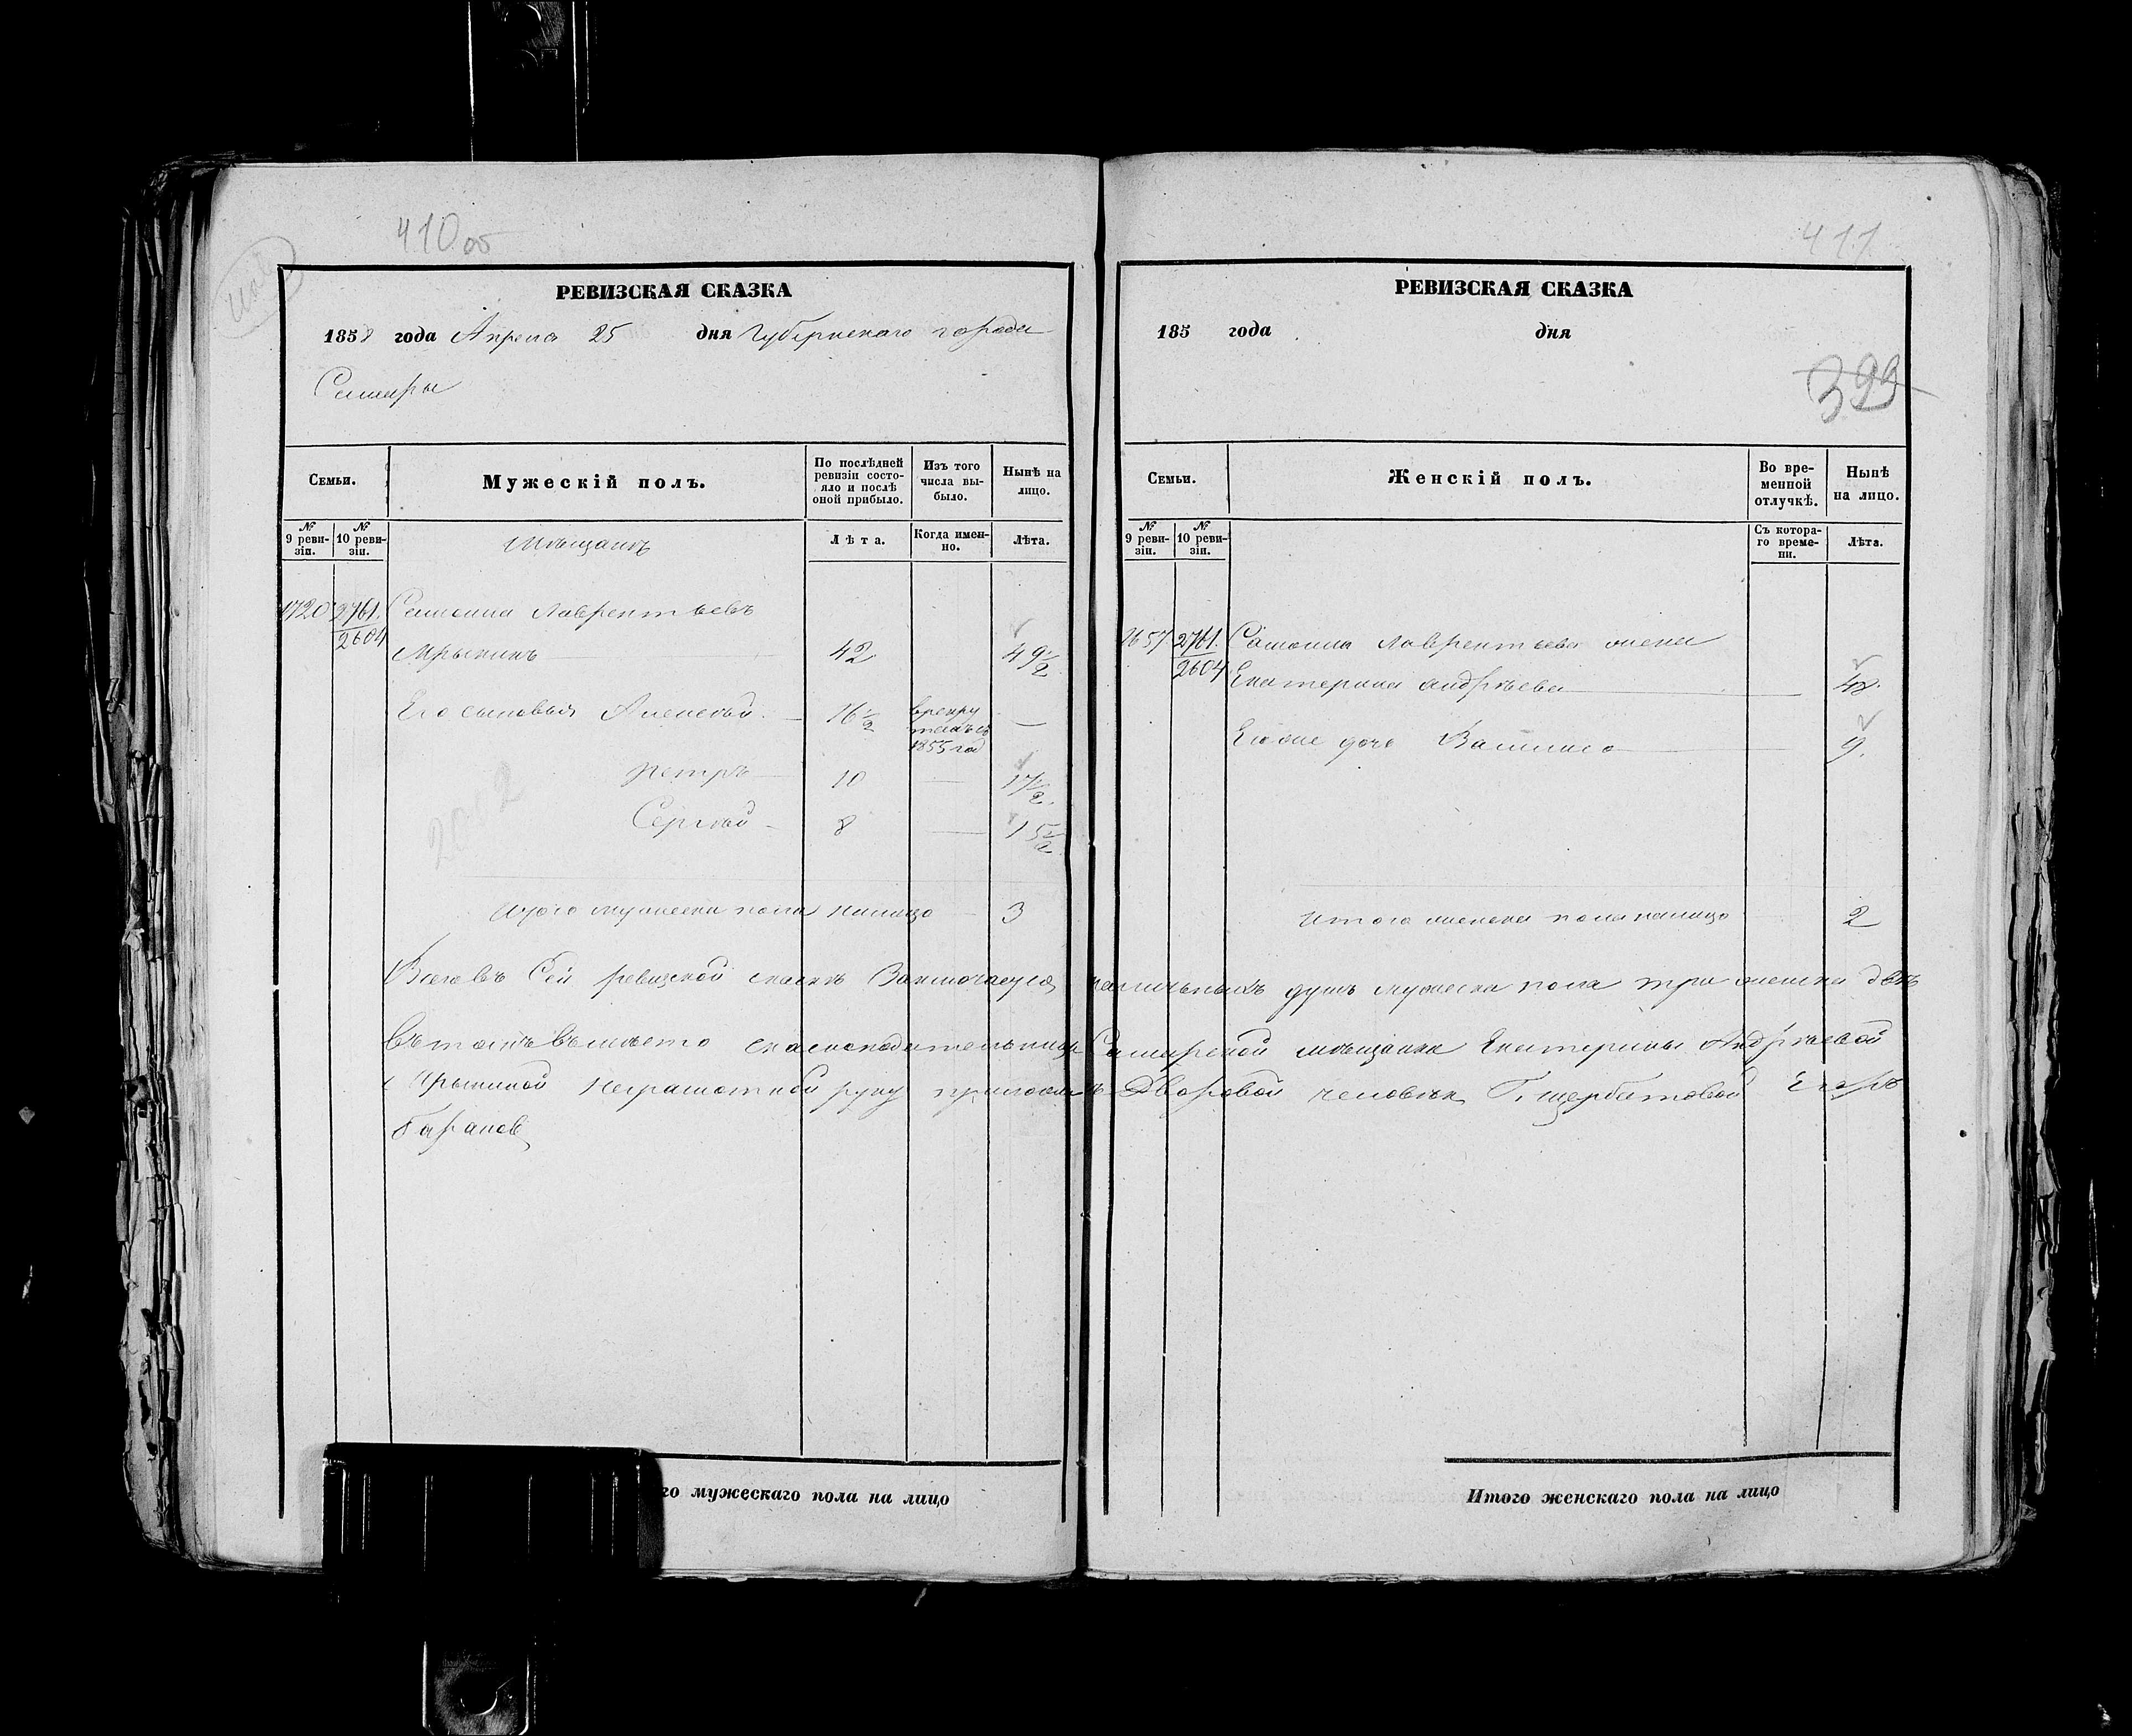 410об
РЕВИЗСКАЯ СКАЗКА
1858 года Апреля 25 дня Губернскаго города
Самары
Семьи.
Мужескій полъ.
По послѣдней ревизіи состояло и послѣ оной прибыло.
Изъ того числа выбыло.
Нынѣ на лицо.
№ 9 ревизіи.
№ 10 ревизіи.
Мещанъ
Лѣта.
Когда именно.
Лѣта.
1720 2761. Самойла Лаврентьевъ
2604 42 49 1/2
Его сыновья Алексѣй 16 1/2 в рекрутахъ съ 1855 год —
Петръ 10 — 17 1/2
Сергѣй 8 — 15 1/2
Итого мужеска пола налицо 3
го мужескаго пола на лицо
411
РЕВИЗСКАЯ СКАЗКА
185 года дня
399
Семьи.
Женскій полъ.
Во временной отлучкѣ.
Нынѣ на лицо.
№ 9 ревизіи.
№ 10 ревизіи.
Съ котораго времени.
Лѣта.
1657 2761. Самойла Лаврентьева жена
2604 Екатерина Андрѣева — 48.
Его же дочь — 9.
Итого женска пола налицо 2
Всего въ сей ревизской сказкѣ заключается наличныхъ душъ мужеска пола три женска двѣ
въ томъ вместо сказкоподательницы Самарской мѣщанки Екатерины Андрѣевой
неграмотной руку приложилъ Дворовой человѣкъ Г. Щербатовой Егоръ
Баранов
Итого женскаго пола на лицо